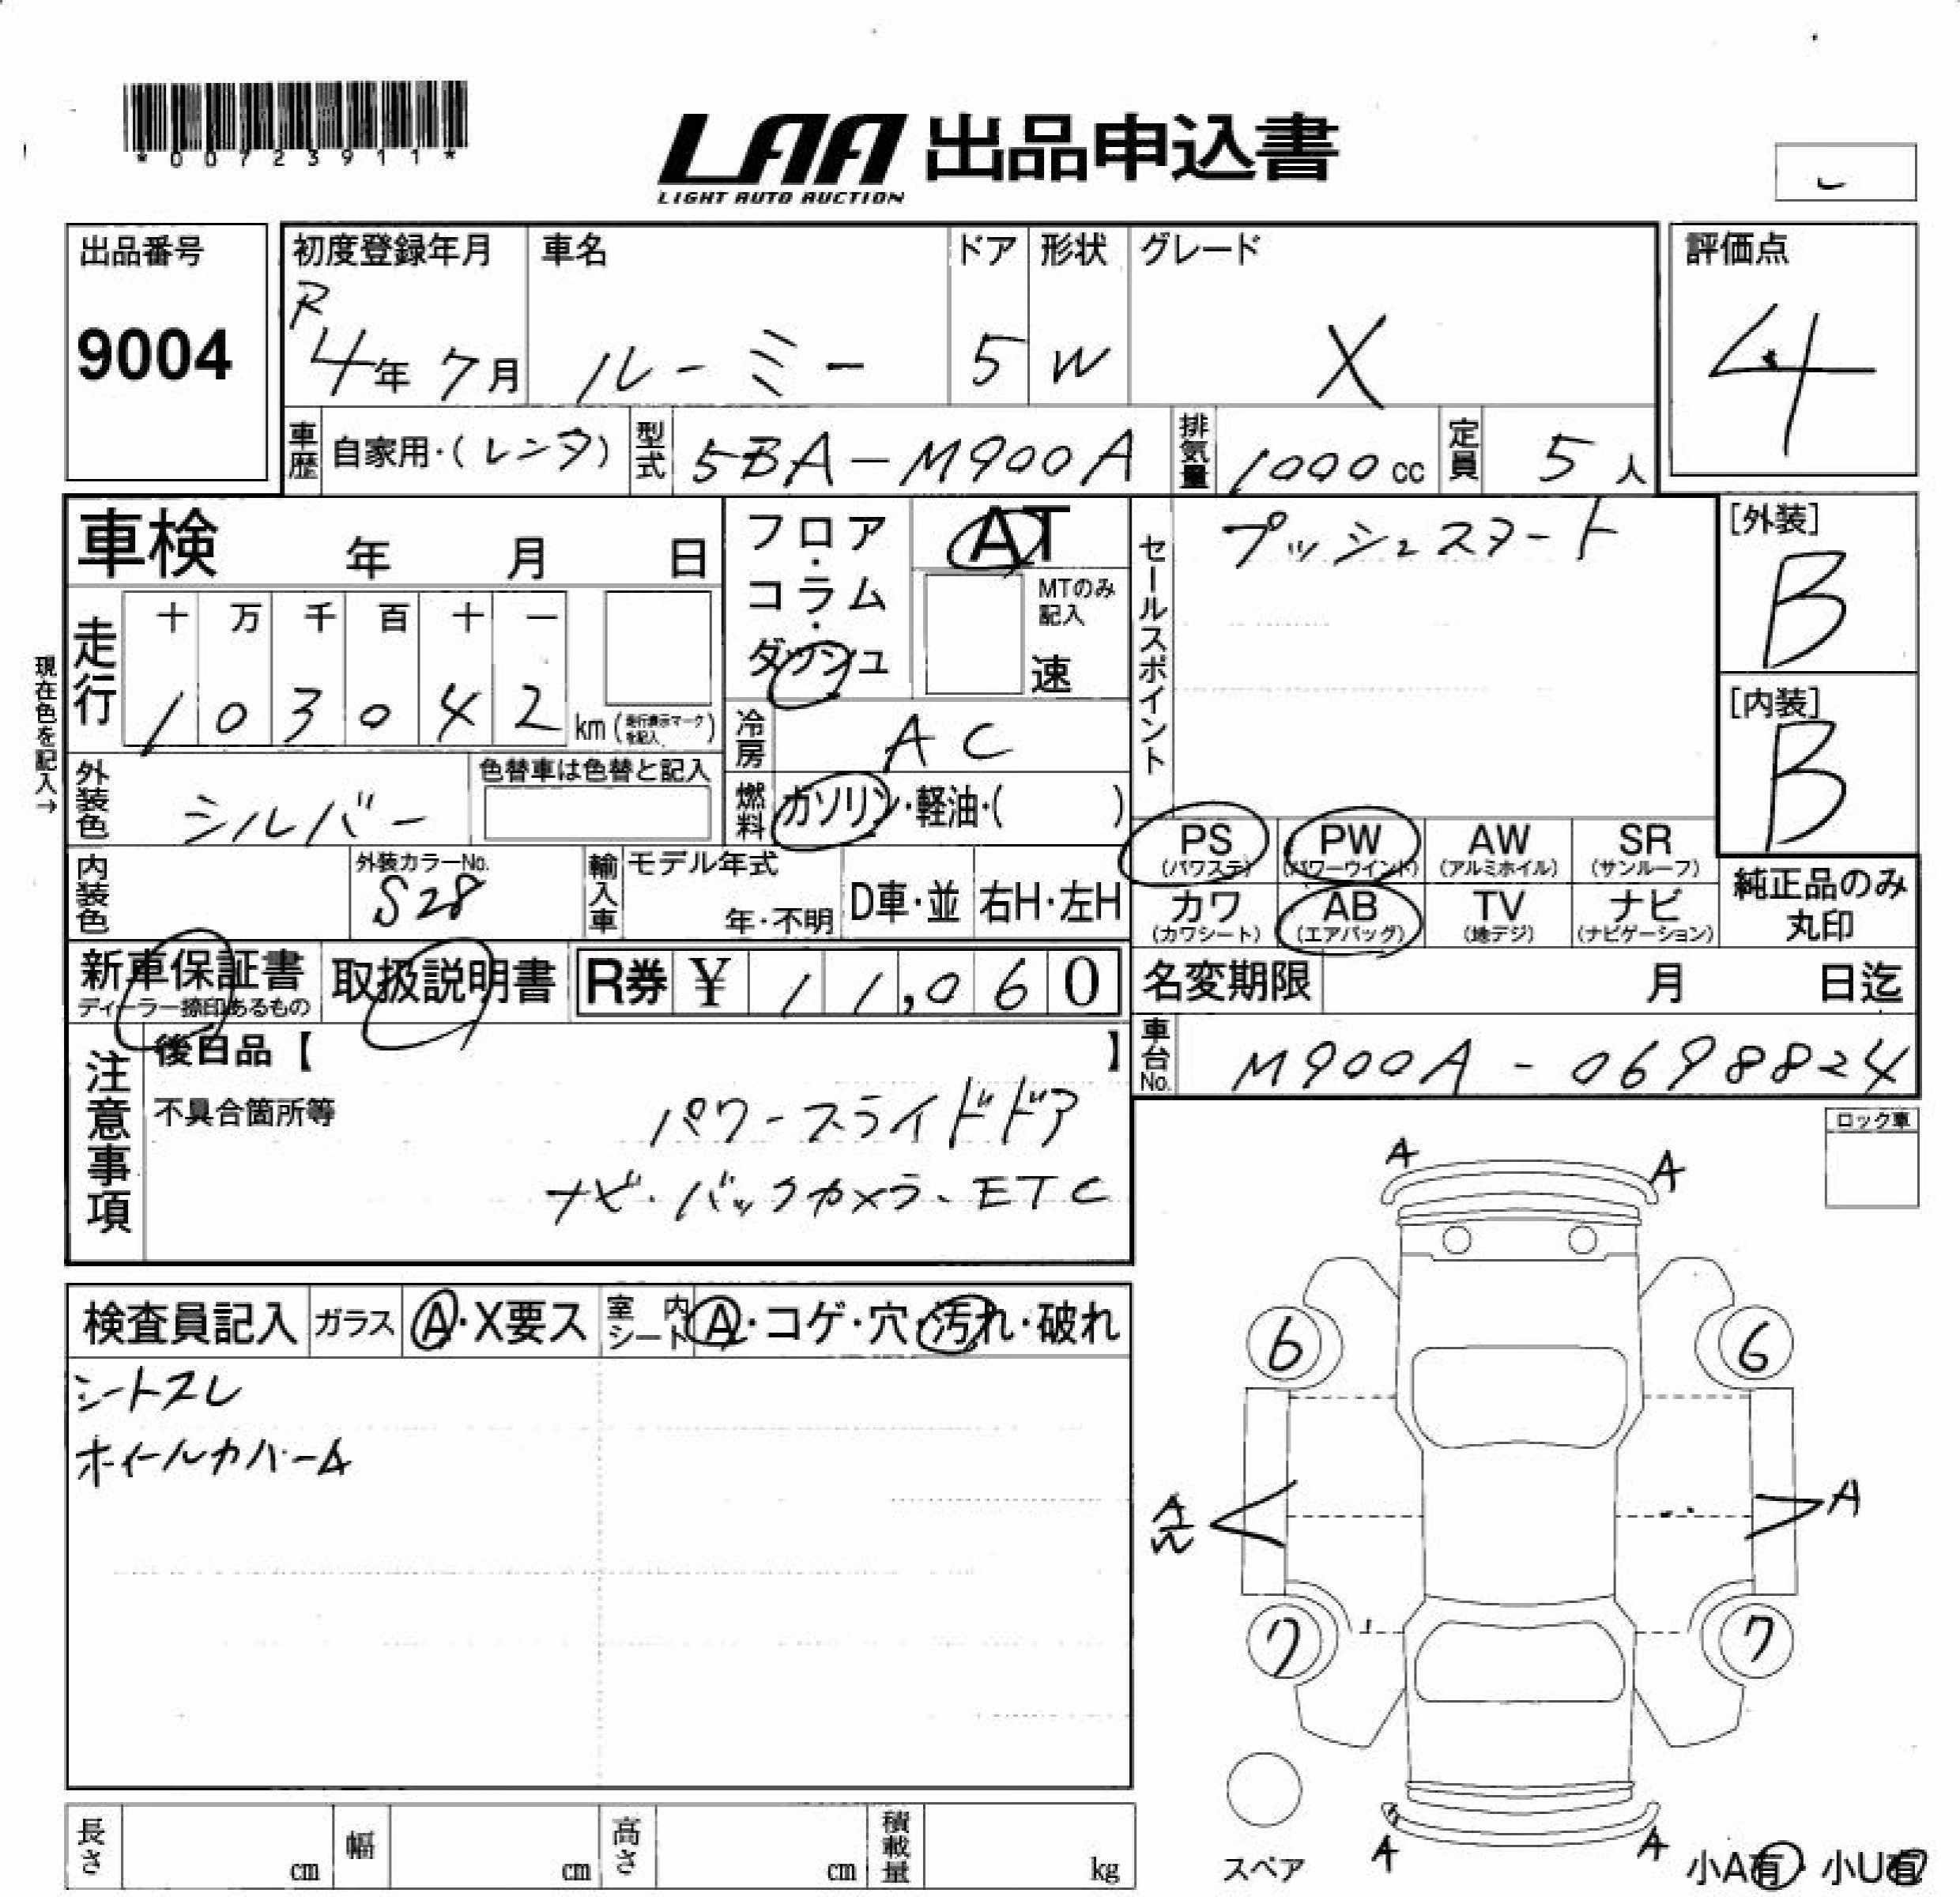 *00723911*
LAA 出品申込書
LIGHT AUTO AUCTION
出品番号
9004
初度登録年月
R
4年 7月
車名
ルーミー
ドア
5
形状
W
グレード
X
評価点
4
車歴 自家用・(レンタ)
型式 5BA-M900A
排気量 1000cc
定員 5人
車検 年 月 日
現在色を記入→
走行
十 万 千 百 十 一
1 0 3 0 4 2 km(走行表示マークを記入)
外装色 シルバー
色替車は色替と記入
内装色
外装カラーNo.
S28
輸入車
モデル年式
年・不明
D車・並
右H・左H
フロア・コラム・ダッシュ
AT
MTのみ記入
速
冷房 AC
燃料 ガソリン・軽油・( )
セールスポイント
プッシュスタート
[外装]
B
[内装]
B
PS (パワステ)
PW (パワーウインド)
AW (アルミホイル)
SR (サンルーフ)
カワ (カワシート)
AB (エアバッグ)
TV (地デジ)
ナビ (ナビゲーション)
純正品のみ
丸印
新車保証書
ディーラー捺印あるもの
取扱説明書
R券 ¥ 11,060
名変期限 月 日迄
車台No. M900A-0698824
注意事項
後日品【 】
不具合箇所等
パワースライドドア
ナビ・バックカメラ・ETC
ロック車
検査員記入
ガラス A・X要ス
室内シート A・コゲ・穴・汚れ・破れ
シートスレ
ホイールカバーA
A A
6 6
A
A
7 7
A A
スペア
小A有・小U有
長さ cm
幅 cm
高さ cm
積載量 kg